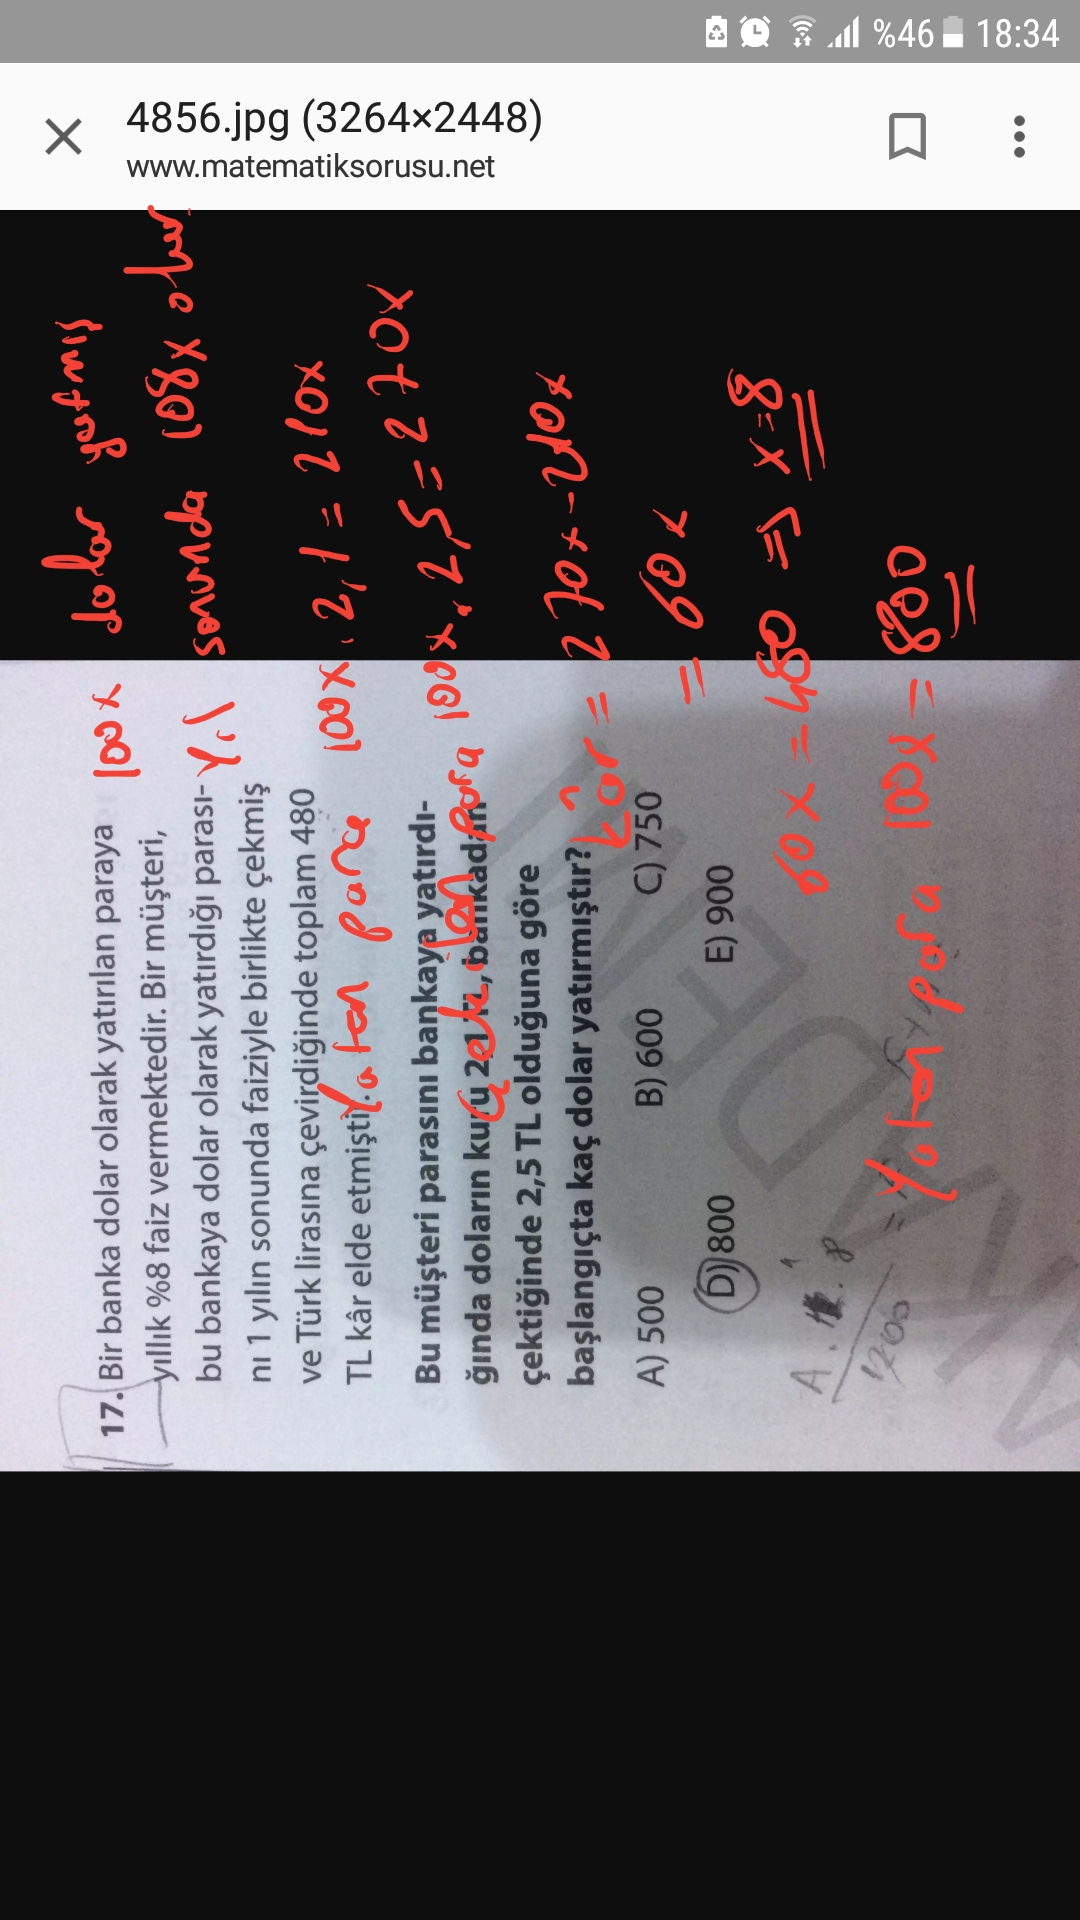 %46 18:34
4856.jpg (3264×2448)
www.matematiksorusu.net
17. Bir banka dolar olarak yatırılan paraya
yıllık %8 faiz vermektedir. Bir müşteri,
bu bankaya dolar olarak yatırdığı parası-
nı 1 yılın sonunda faiziyle birlikte çekmiş
ve Türk lirasına çevirdiğinde toplam 480
TL kâr elde etmiştir.
Bu müşteri parasını bankaya yatırdı-
ğında doların kuru 2,1 TL, bankadan
çektiğinde 2,5 TL olduğuna göre
başlangıçta kaç dolar yatırmıştır?
A) 500 B) 600 C) 750
D) 800 E) 900
100x dolar yatmış
Yıl sonunda 108x olur
Yatan para 100x . 2,1 = 210x
Çekilen para 100x . 2,5 = 270x
kâr = 270x - 210x
= 60x
60x = 480 => x = 8
Yatan para 100x = 800
1200
AKADEMİ